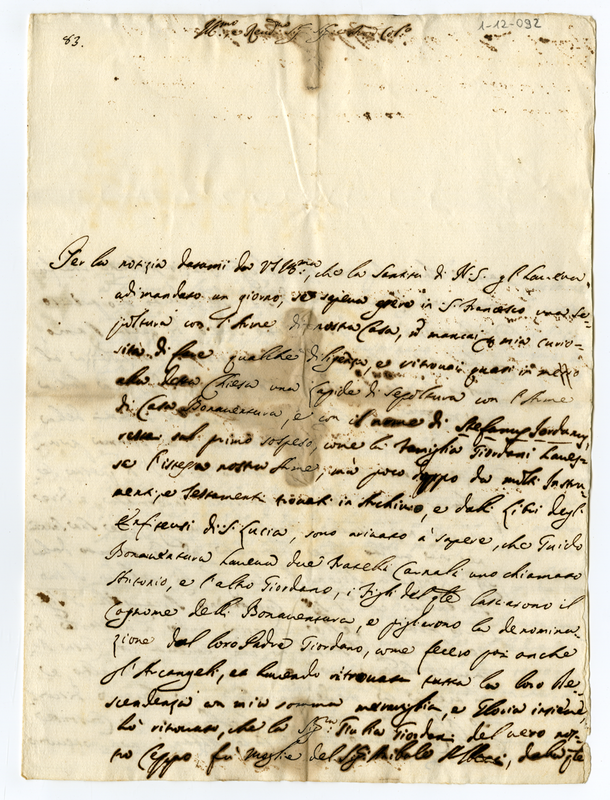 83.
1-12-092
Ill.mo e Rend.mo Sig.
Per la notizia datami da VS Ill.ma, che la Santità di N.S. gl'haveva
adimandato un giorno, se sapeva essere in S. Francesco una se-
poltura con l'Arme di nostra Casa, non mancai mia curio-
sità di fare qualche diligenza, et ritrovai quasi in mezzo
alla detta Chiesa una Lapide di sepoltura con l'Arme
di Casa Bonaventura, e con il nome di Stefanus Jordanus,
restai sul primo sospeso come la famiglia Giordani haves-
se l'istessa nostra Arme, mà poco doppo da molti Instru-
menti, e Testamenti trovati in Archivio, e dalli Libri degli
Enfiteusi di S. Lucia, sono arrivato à sapere, che Guido
Bonaventura haveva due Fratelli Carnali uno chiamato
Antonio, e l'altro Giordano, i figli del q.le lasciarono il
Cognome delli Bonaventura, e pigliarono la denomina-
zione del loro Padre Giordano, come fecero poi anche
gl'Arcangeli, et havendo ritrovata tutta la loro de-
scendenza con mia somma meraviglia, e Gloria insieme,
hò ritrovato, che la Sig.ra Giulia Giordani del vero nos-
tro Ceppo fù moglie del Sig. Annibale Albani, dalli q.li